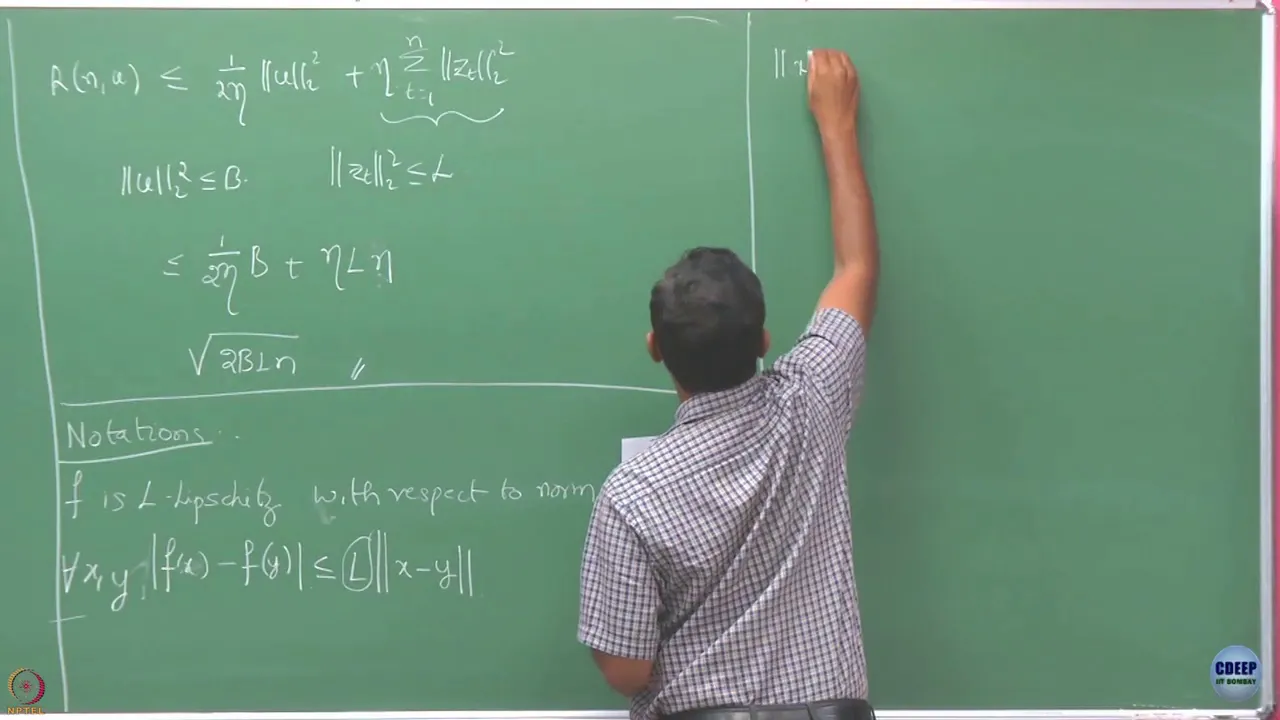 R(n,u) ≤ 1/2η ||u||₂² + η Σ_{t=1}^{n} ||z_t||₂²
||u||₂² ≤ B. ||z_t||₂² ≤ L
≤ 1/2η B + η L n
√2BLn //
Notations..
f is L-Lipschitz with respect to norm
∀x, y, |f(x) - f(y)| ≤ L ||x-y||
||x
NPTEL
CDEEP
IIT BOMBAY